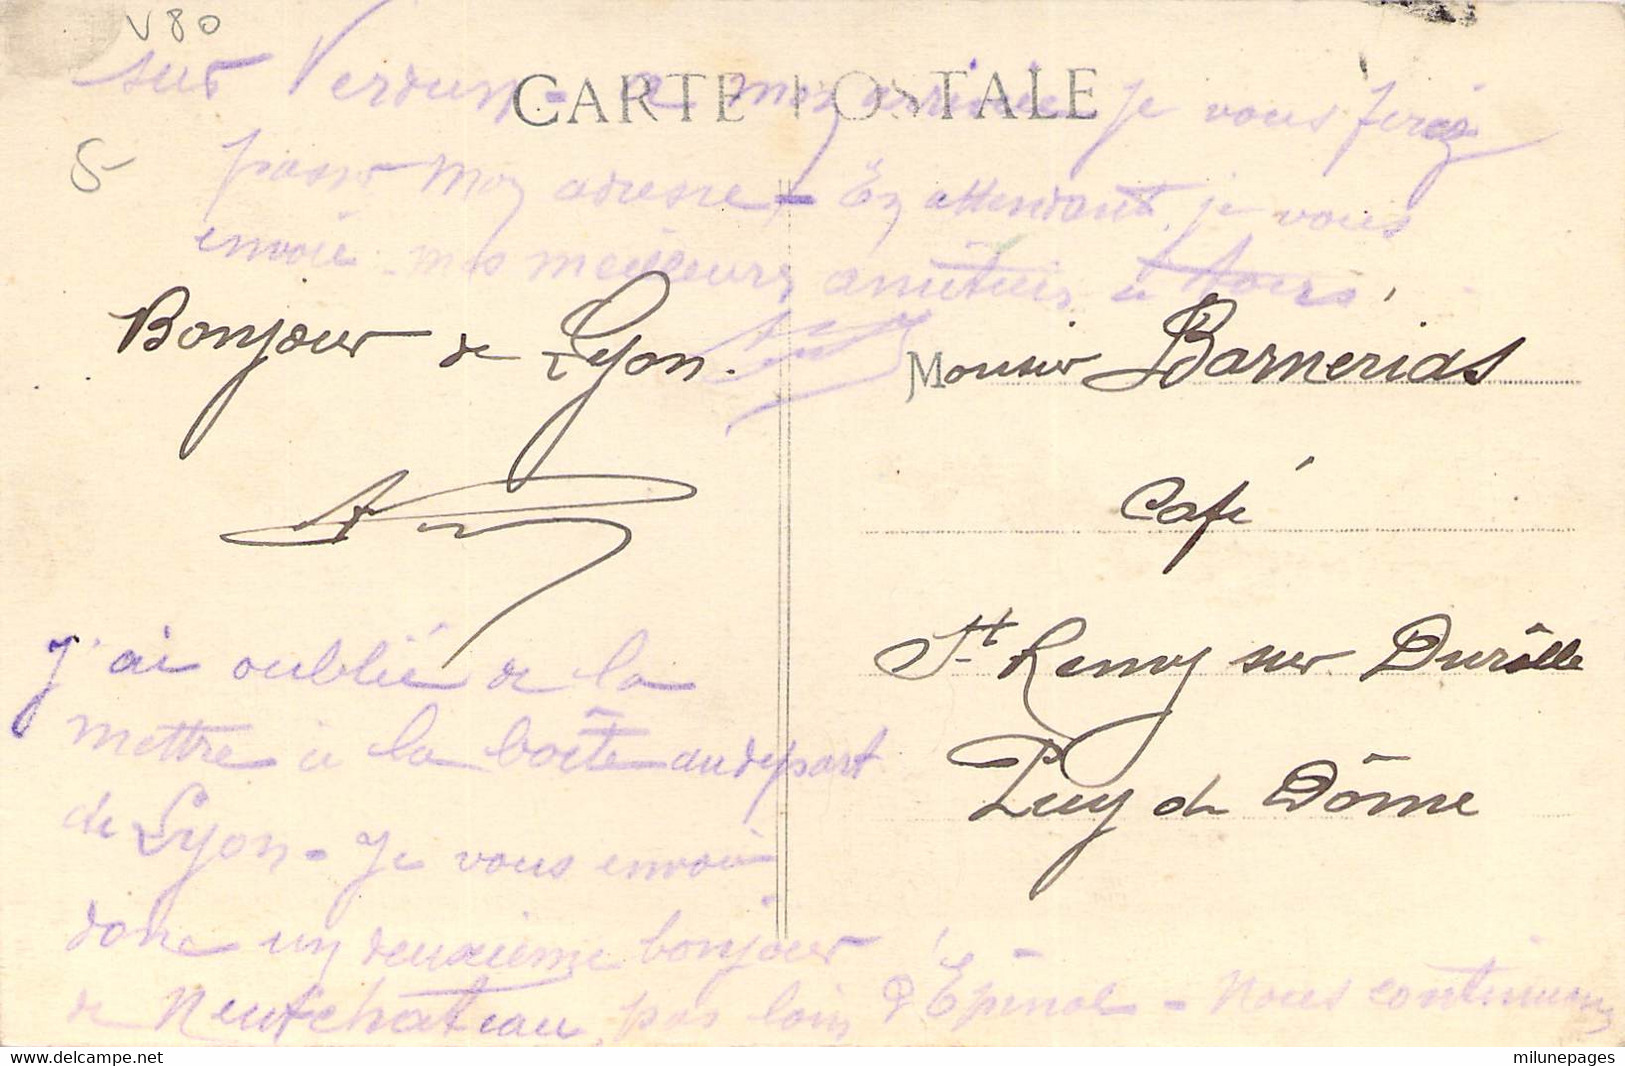 V80
5
CARTE POSTALE
Bonjour de Lyon.
Monsieur Barnerias
Café
St Remy sur Durolle
Puy de Dôme
J'ai oublié de la
mettre à la boîte au départ
de Lyon - Je vous envoie
donc un deuxième bonjour
de Neufchateau, pas loin d'Epinal - Nous continuons
sur Verdun - mon arrivée je vous ferai
passer mon adresse - En attendant je vous
envoie mes meilleures amitiés à tous
milunepages